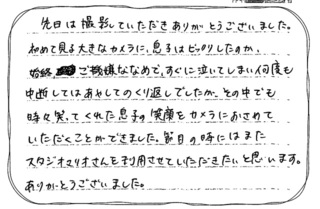 先日は撮影していただきありがとうございました。
初めて見る大きなカメラに、息子はビックリしたのか、
始終ご機嫌ななめで、すぐに泣いてしまい何度も
中断してはあやしてのくり返しでしたが、その中でも
時々笑ってくれた息子の笑顔をカメラにおさめて
いただくことができました。節目の時にはまた
スタジオマリオさんを利用させていただきたいと思います。
ありがとうございました。